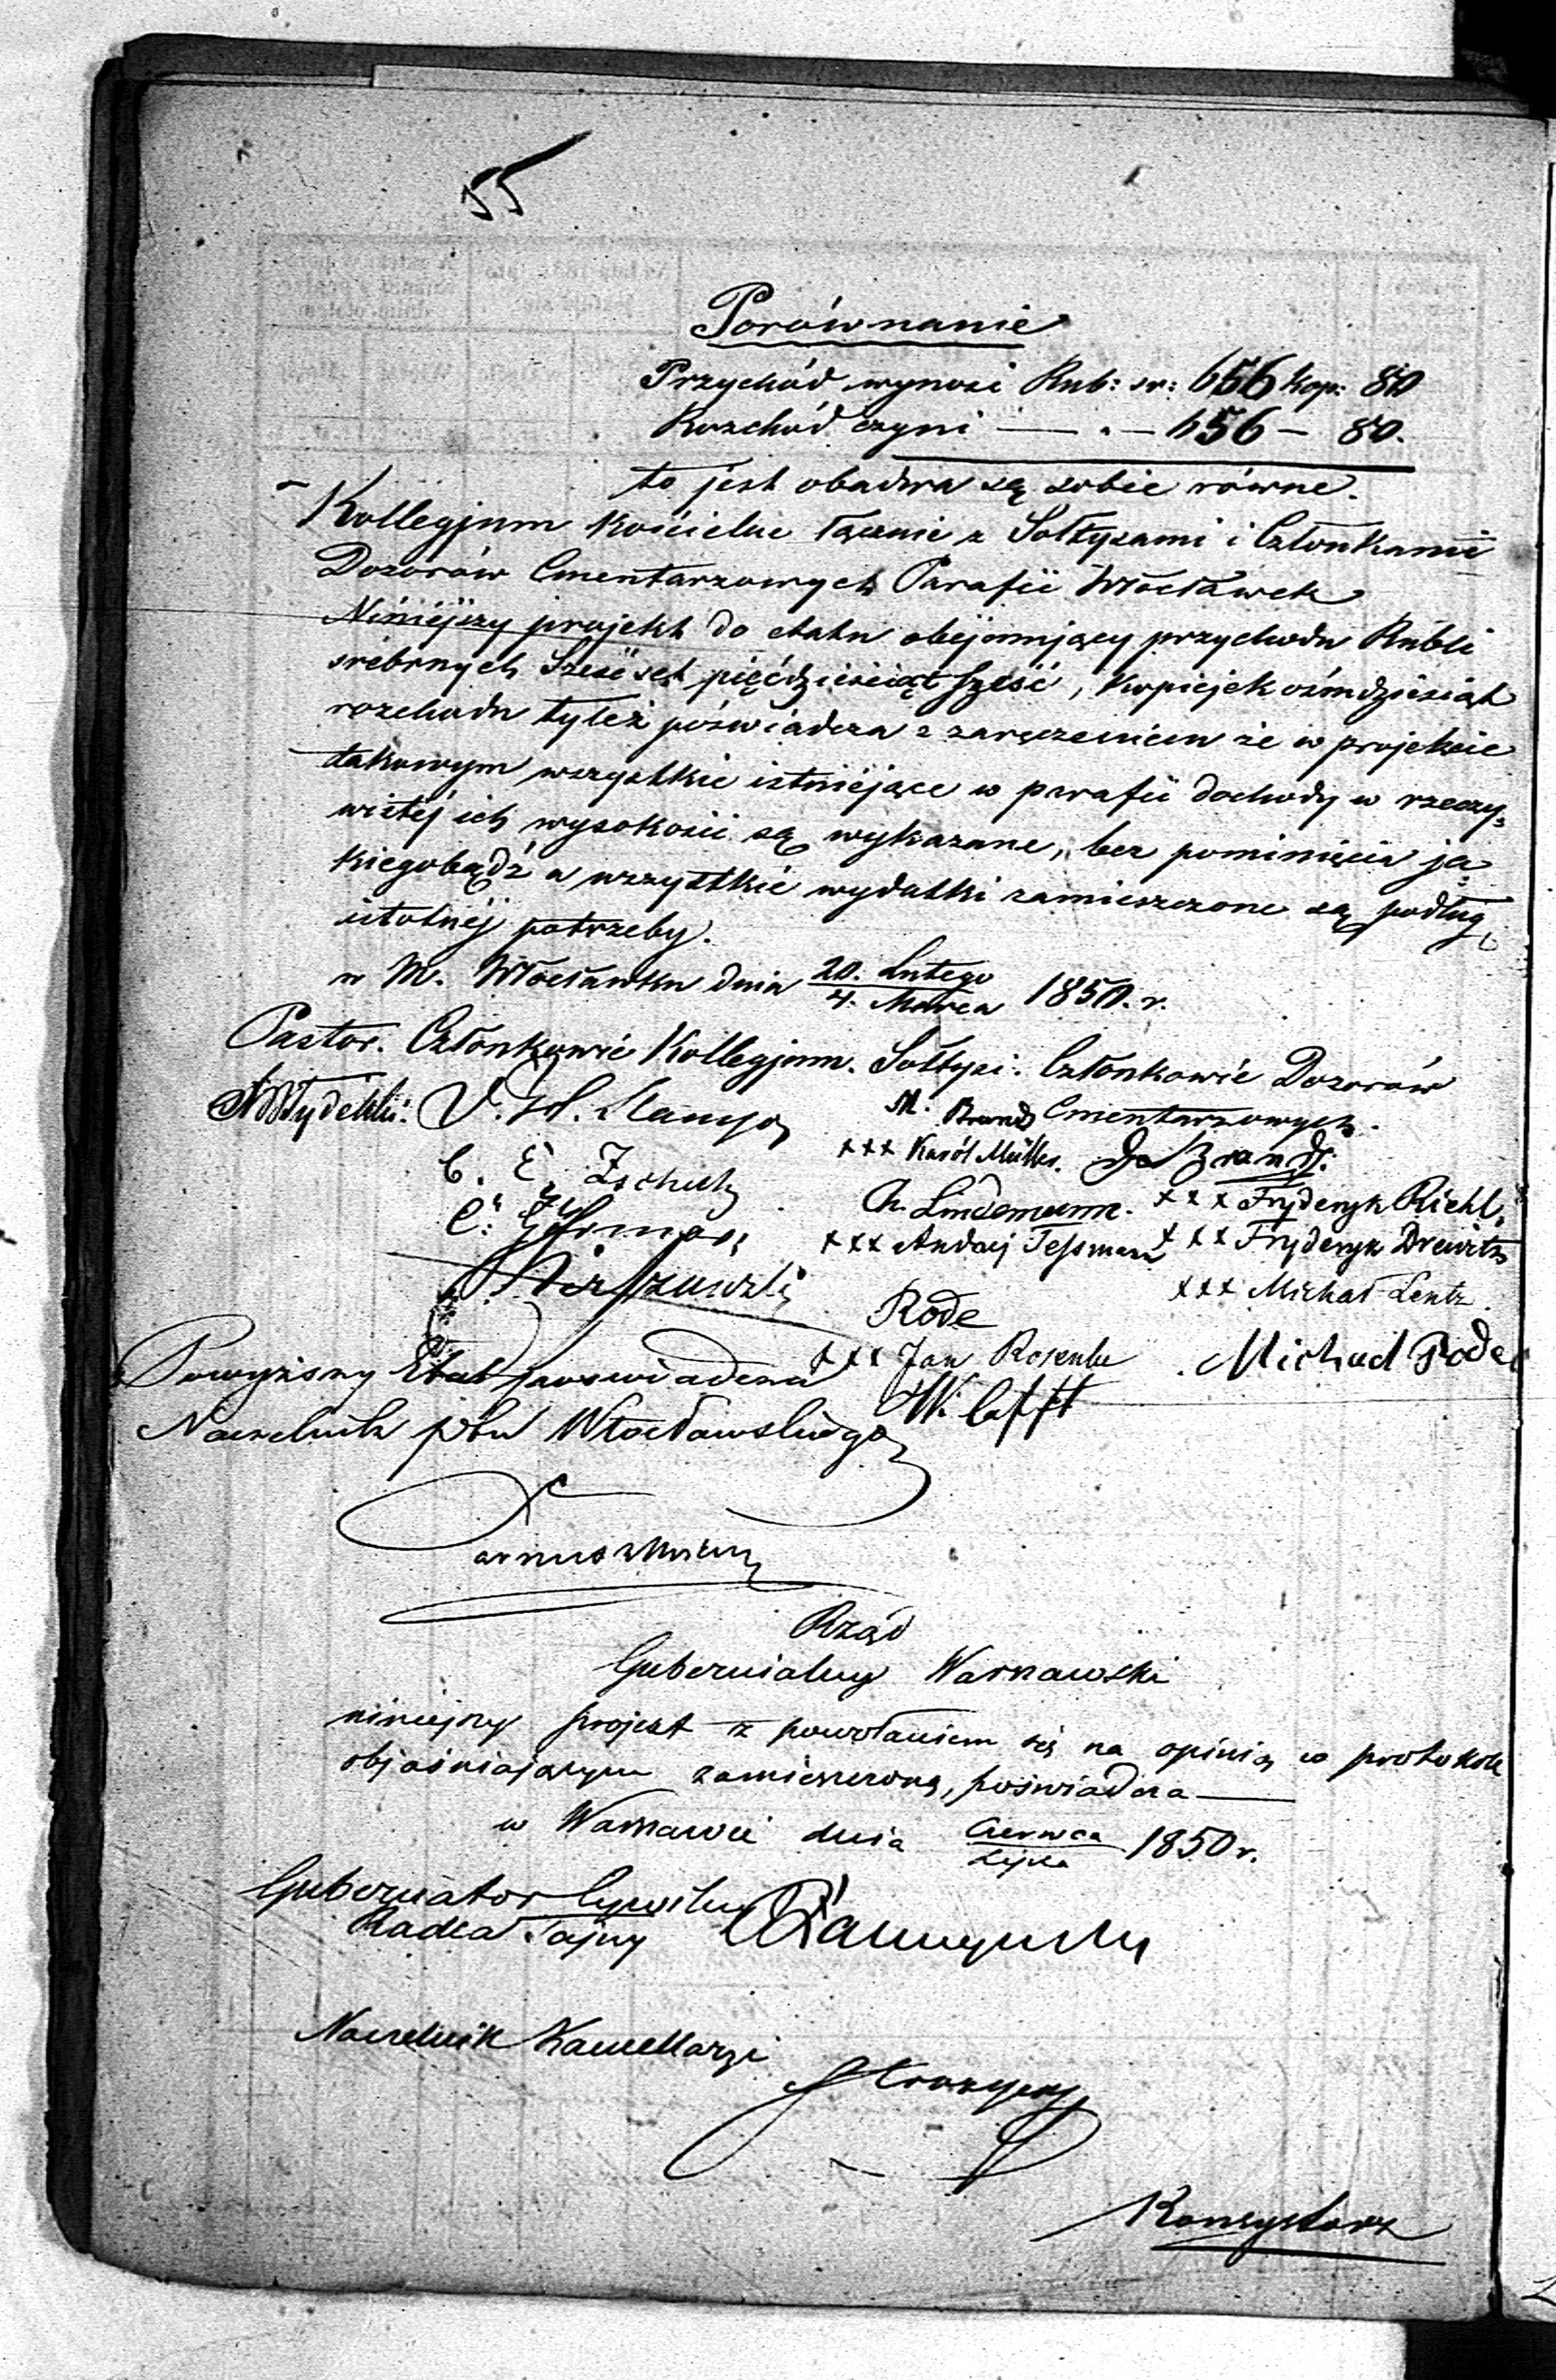 55
Porównanie
Przychód wynosi Rub: sr: 656 kop: 80
Rozchód czyni — „ — 656 — 80.
to jest obadwa są sobie równe.
Kollegjum Kościelne łącznie z Sołtysami i Członkami
Dozorów Cmentarzowych Parafii Włocławek
Niniéjszy projekt do etatu obejmujący przychodu Rubli
srebrnych Sześćset pięćdziesiąt sześć, kopiejek ośmdziesiąt
rozchodu tyleż poświadcza z zaręczeniem że w projekcie
takowym wszystkie istniejące w parafii dochody w rzeczy=
wistéj ich wysokości są wykazane, bez pominięcia ja=
kiegobądź a wszystkie wydatki zamieszczone są podług
istotnéj potrzeby.
w M. Włocławku dnia 20. Lutego / 4. Marca 1850. r.
Pastor. Członkowie Kollegjum. Sołtysi. Członkowie Dozorów
Cmentarzowych.
M. Brand
C. E. Zschutz
xxx Karól Müller. Brandt.
Ch. Lindemann. xxx Fryderyk Riehl.
xxx Andrzej Tessmann xxx Fryderyk Drewitz
xxx Michał Lentz.
Rode
xxx Jan Rosenke Michael Rode
Powyższy Etat poswiadcza
Naczelnik ptu Włocławskiego
W.
Rząd
Gubernialny Warszawski
niniejszy projekt z powołaniem się na opinią w protokole
objaśniającym zamieszczoną, poświadcza —
w Warszawie dnia Czerwca / Lipca 1850 r.
Gubernator Cywilny
Radca Tajny
Naczelnik Kancellaryi
Konsystorz